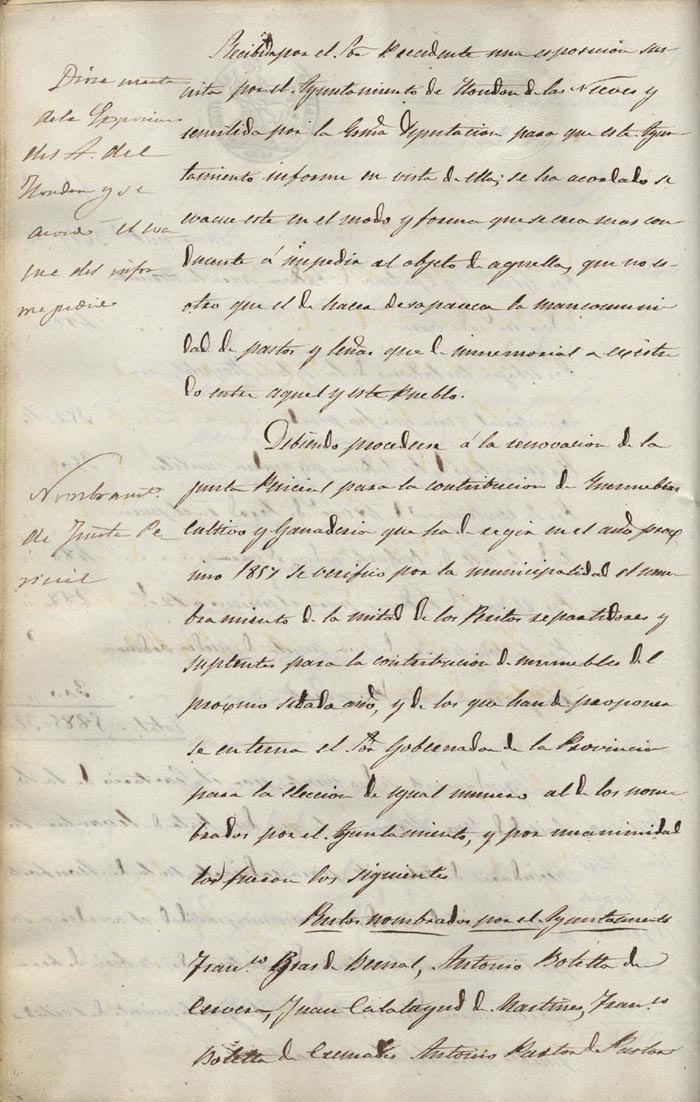 Recibida por el Sor Precidente una esposición sus
crita por el Ayuntamiento de Hondon de las Nieves y
remitida por la Exma Diputacion para que este Ayun
tamiento informe en vista de ella; se ha acordado se
evacue este en el modo y forma que se crea mas con
ducente á impedir al objeto de aquella, que no es
otro que el de hacer desaparecer la mancomuni
dad de pastos y leñas que de inmemorial a existi
do entre aquel y este Pueblo.
Diose cuenta
de la Exposicion
del A. del
Hondon y se
acordó el eva
cue del infor
me pedido
Debiendo procederse á la renovacion de la
junta Pericial para la contribucion de Inmuebles
Cultivo y Ganaderia que ha de regir en el año prox
imo 1857 se verifico por la municipalidad el nom
bramiento de la mitad de los Peritos repartidores y
suplentes para la contribucion de inmuebles del
proximo citado año, y de los que han de proponer
se en terna el Sor Gobernador de la Provincia
para la eleccion de igual numero al de los nom
brados por el Ayuntamiento, y por unanimidad
lo fueron los siguientes
Nombramto
de Junta Pe
ricial
Peritos nombrados por el Ayuntamiento
Franco Mas de Bernal, Antonio Botella de
Cervera, Juan Calatayud de Martinez, Franco
Botella de Cremades Antonio Pastor de Pastor